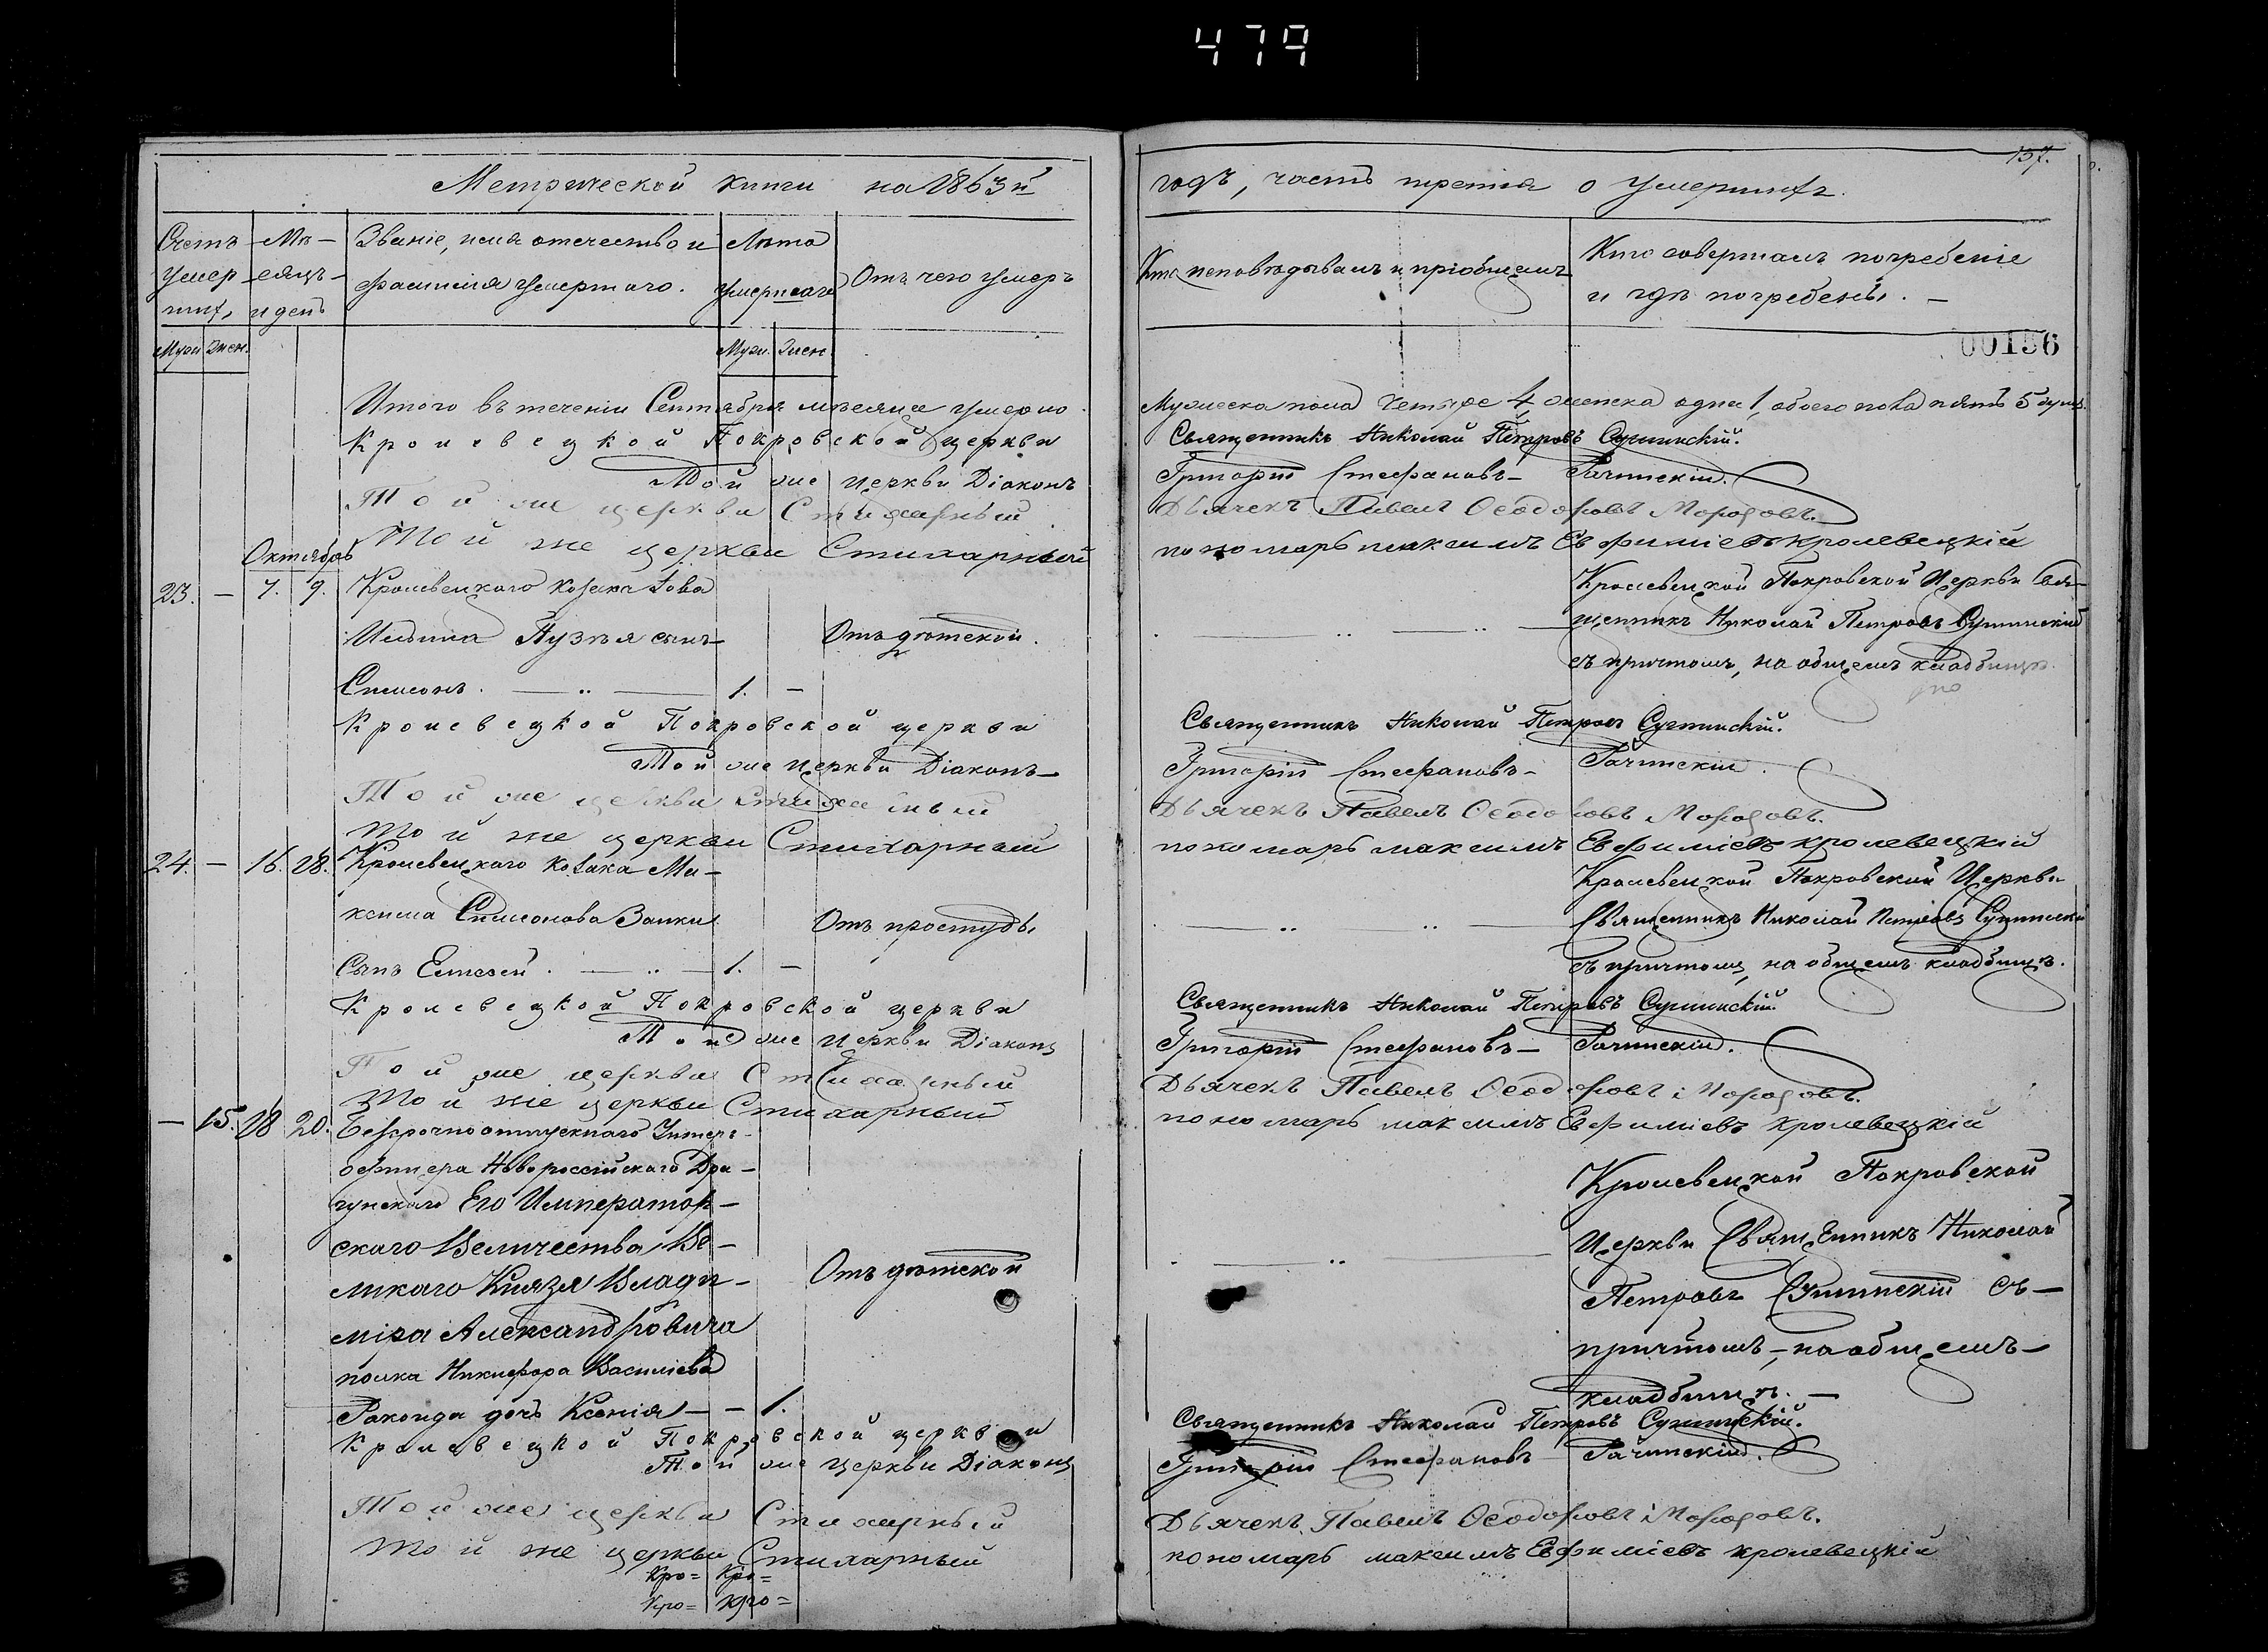 479
Метрической книги на 1863й
Счетъ
умер
шихъ
Муж. Жен.
Мѣ-
сяцъ
и день
Званіе, имя отечество и
фамилія умершаго.
Лѣта
умершаго
Муж. Жен.
Отъ чего умеръ
Итого въ теченіи Сентября мѣсяца умерло
Кролевецкой Покровской церкви
Той же церкви Діаконъ
Той же церкви Стихарный
Той же церкви Стихарный
Октябрь
23. — 7. 9. Кролевецкаго козака Іова
Ильина Пузыя сынъ Отъ дѣтской.
Симеонъ. — 1. —
Кролевецкой Покровской церкви
Той же церкви Діаконъ
Той же церкви Стихарный
Той же церкви Стихарный
24. — 16. 18. Кролевецкаго козака Ма-
ксима Симеонова Заики Отъ простуды
Сынъ Елисей. — 1. —
Кролевецкой Покровской церкви
Той же церкви Діаконъ
Той же церкви Стихарный
Той же церкви Стихарный
— 15. 18 20. Безсрочноотпускнаго Унтеръ-
офицера Новороссійскаго Дра-
гунскаго Его Император-
скаго Величества Ве-
ликаго Князя Влади- Отъ дѣтской
міра Александровича
полка Никифора Василіева
Ракоида дочь Ксенія — — 1.
Кролевецкой Покровской церкви
Той же церкви Діаконъ
Той же церкви Стихарный
Той же церкви Стихарный
Кро= Кро=
Кро= Кро=
157.
годъ, часть третія о умершихъ.
Кто исповѣдывалъ и пріобщалъ
Кто совершалъ погребеніе
и гдѣ погребены. —
00156
Мужеска пола четыре 4, женска одна 1, обоего пола пять 5 душъ.
Священникъ Николай Петровъ Сушинскій.
Григорій Стефановъ Рачинскій.
Дьячекъ Павелъ Ѳеодоровъ Морозовъ.
пономарь максимъ Евфиміевъ кролевецкій
Кролевецкой Покровской Церкви Свя-
щенникъ Николай Петровъ Сушинскій
съ причтомъ, на общемъ кладбищѣ.
Священникъ Николай Петровъ Сушинскій.
Григорій Стефановъ Рачинскій.
Дьячекъ Павелъ Ѳеодоровъ Морозовъ.
пономарь максимъ Евфиміевъ кролевецкій
Кролевецкой Покровской Церкви
Священникъ Николай Петровъ Сушинскій
съ причтомъ, на общемъ кладбищѣ.
Священникъ Николай Петровъ Сушинскій.
Григорій Стефановъ Рачинскій.
Дьячекъ Павелъ Ѳеодоровъ Морозовъ.
пономарь максимъ Евфиміевъ кролевецкій
Кролевецкой Покровской
Церкви Священникъ Николай
Петровъ Сушинскій съ
причтомъ, на общемъ
кладбищѣ. —
Священникъ Николай Петровъ Сушинскій.
Григорій Стефановъ Рачинскій.
Дьячекъ Павелъ Ѳеодоровъ Морозовъ.
пономарь максимъ Евфиміевъ кролевецкій